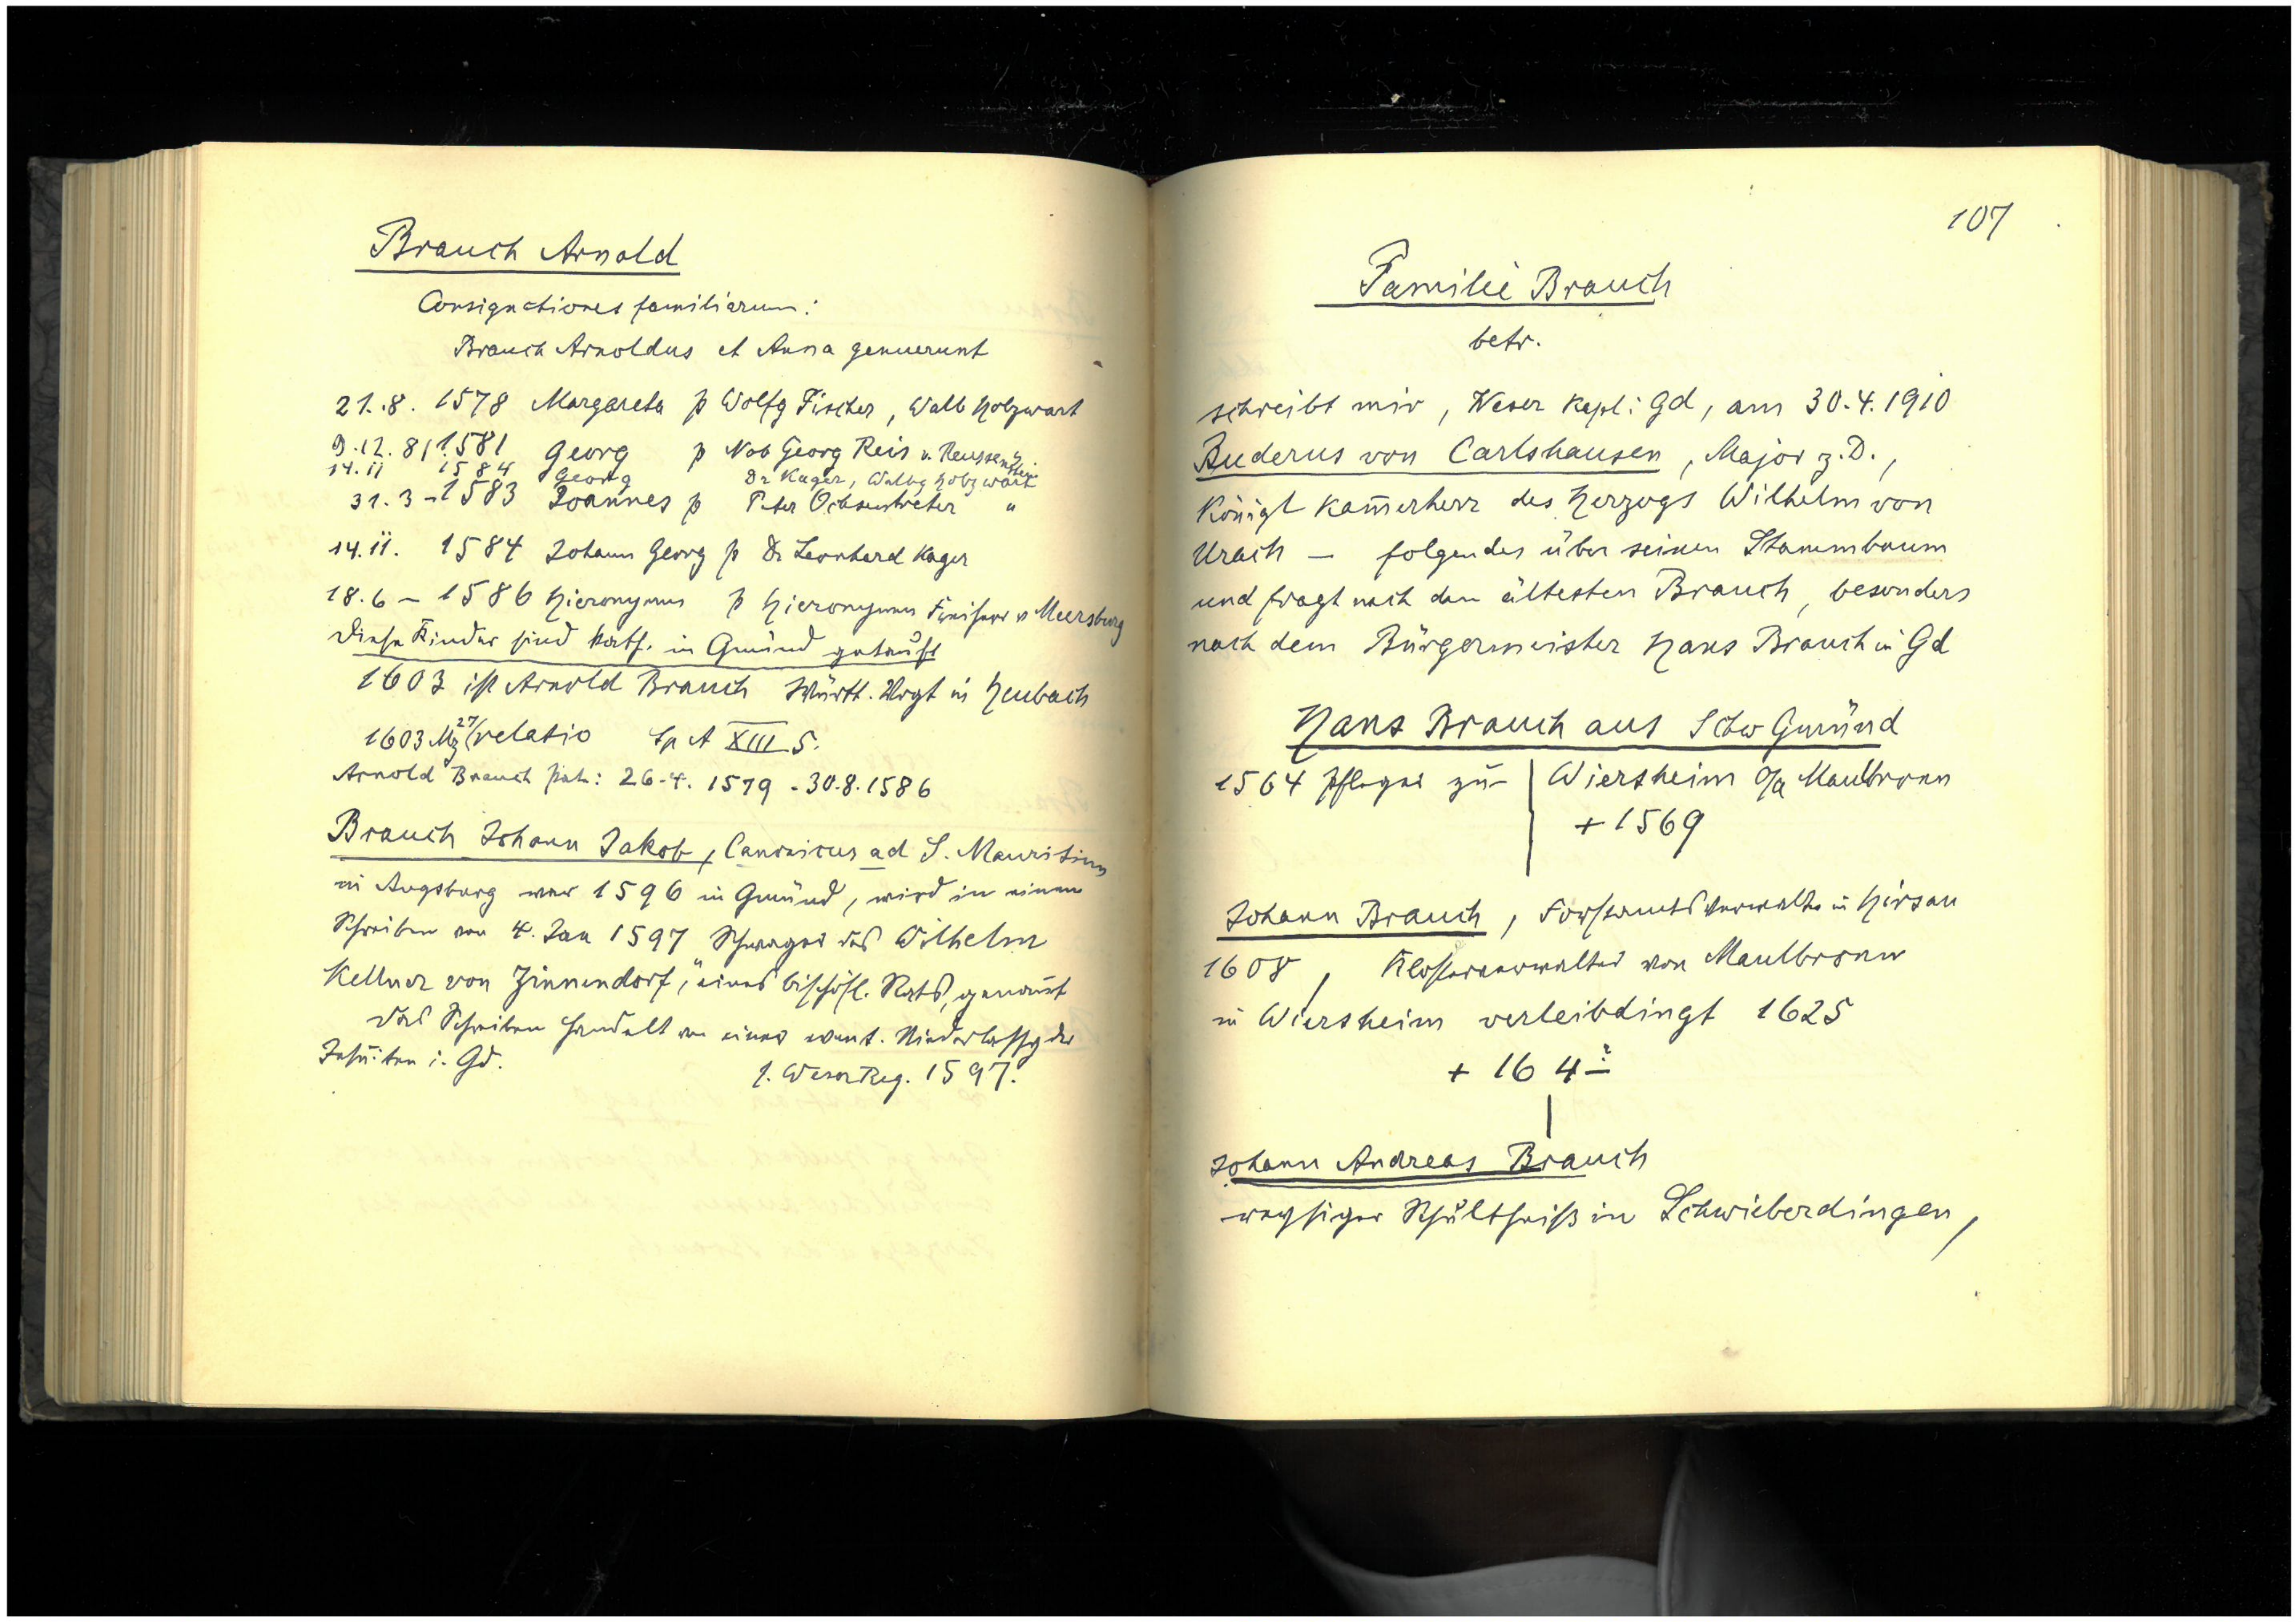 Brauch Arnold
Consignationes familiarum:
Brauch Arnoldus et Anna genuerunt
21.8. 1578 Margareta p Wolfg Fischer, Walb Holzwart
9.12.81 1581 Georg p Nob Georg Reis v. Reussenstein
14.11 1584 Georg Dr Kager, Walbg Holzwart
31.3 – 1583 Joannes p Peter Ochsentreter "
14.11. 1584 Johann Georg p Dr Leonhard Kager
18.6 – 1586 Hieronymus p Hieronymus Freiherr v Meersburg
Diese Kinder sind kath. in Gmünd getauft
1603 ist Arnold Brauch Württ. Vogt in Heubach
1603 Mz 27/ relatio Sp A XIII 5.
Arnold Brauch pat.: 26.4. 1579 - 30.8.1586
Brauch Johann Jakob, Canonicus ad S. Mauritium
in Augsburg war 1596 in Gmünd, wird in einem
Schreiben von 4. Jan 1597 Schwager des Wilhelm
Kellner von Zinnendorf, eines bischöfl. Rats, genannt
Das Schreiben handelt von einer event. Niederlassg der
Jesuiten i. Gd.
s. Weser Reg. 1597.
107
Familie Brauch
betr.
schreibt mir, Weser Kapl. i Gd, am 30.4.1910
Buderus von Carlshausen, Major z.D.,
Königl Kam̄erherr des Herzogs Wilhelm von
Urach – folgendes über seinen Stammbaum
und fragt nach den ältesten Brauch, besonders
nach dem Bürgermeister Hans Brauch in Gd
Hans Brauch aus Schw Gmünd
1564 Pfleger zu Wiersheim O/A Maulbronn
+ 1569
Johann Brauch, Forstamtsverwalter in Hirsau
1608, Klosterverwalter von Maulbronn
in Wiersheim verleibdingt 1625
+ 164?
Johann Andreas Brauch
Schultheiß in Schwieberdingen,